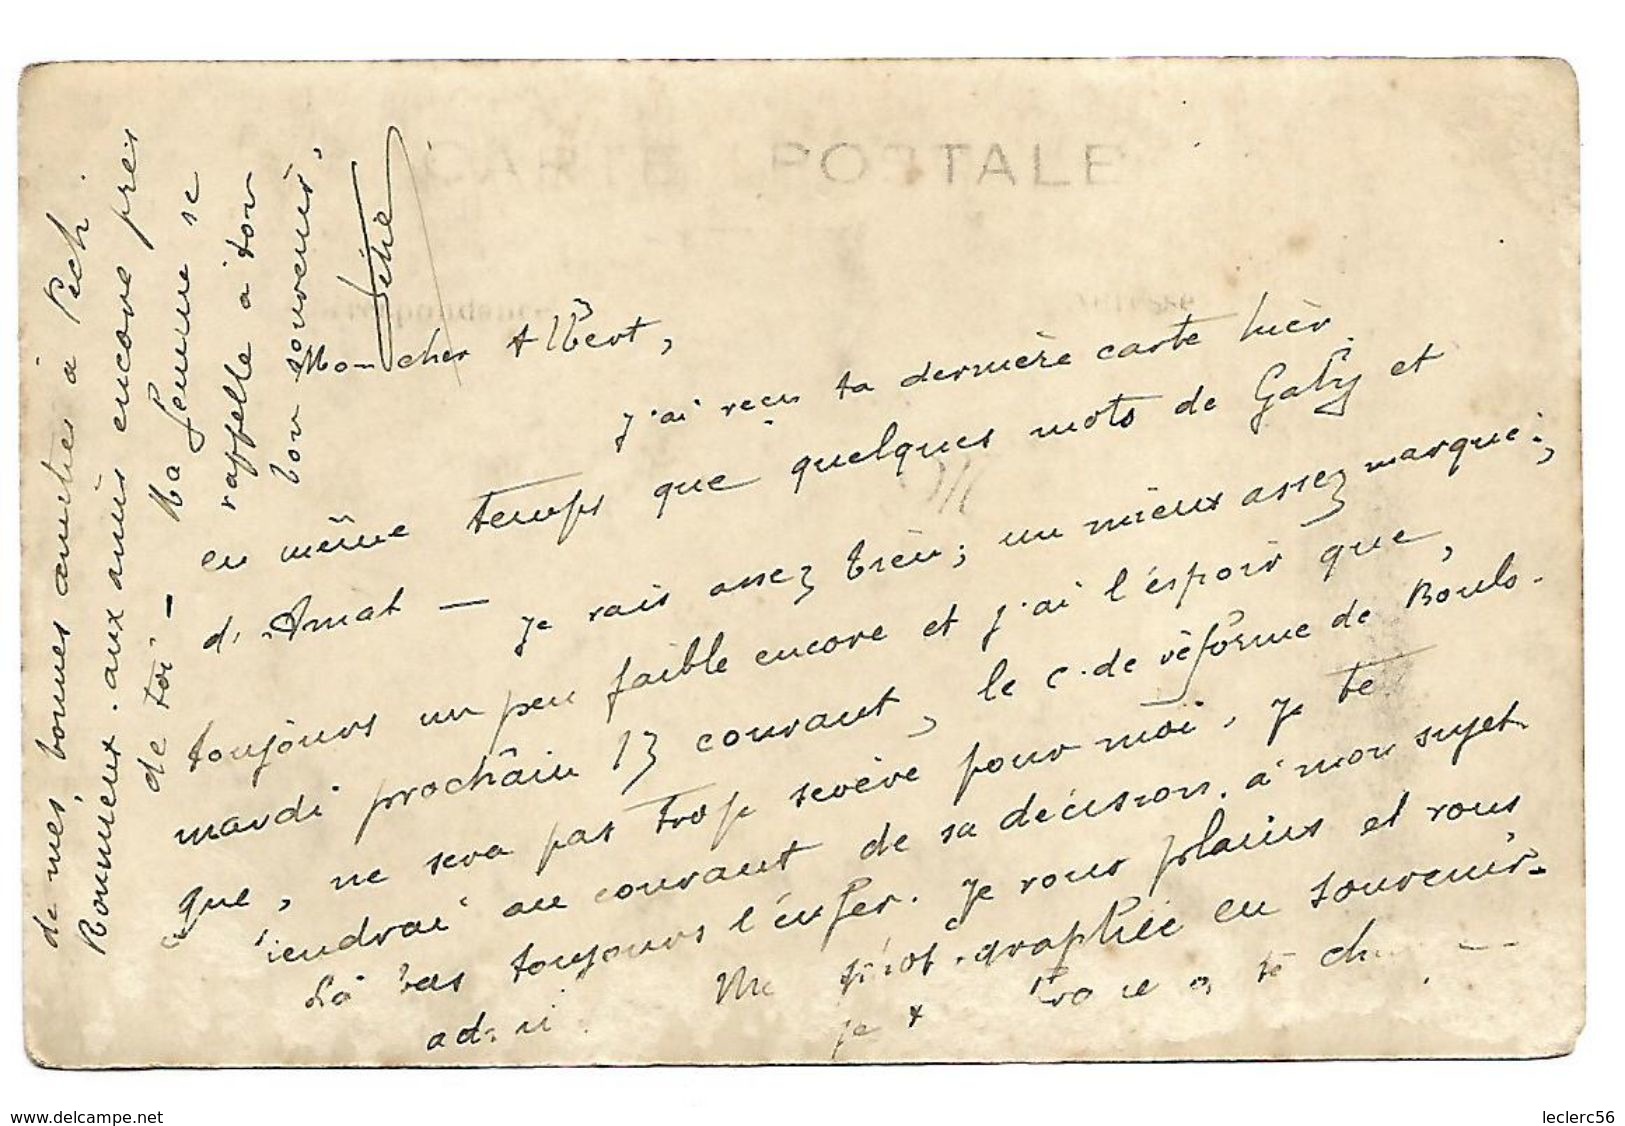 CARTE POSTALE
Correspondance
Adresse
Mon cher Albert,
J'ai reçu ta dernière carte hièr
en même temps que quelques mots de Gaby et
d'Amat — Je vais assez bièn ; un mieux assez marqué ;
toujours un peu faible encore et j'ai l'espoir que,
mardi prochain 13 courant, le c. de réforme de Boulo.
que, ne sera pas trop sevère pour moi. Je te
tiendrai au courant de sa décision à mon sujet.
Là bas toujours l'enfer. Je vous plains et vous
ad
graphie en souvenir.
je
de mes bonnes amitiés à Pech
Rommeux. aux amis encore près
de toi — Ma femme se
rappelle à ton
bon souvenir,
www.delcampe.net
leclerc56